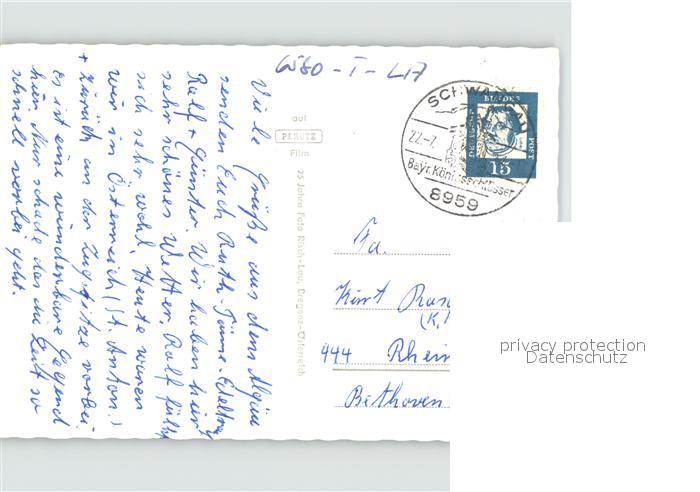 6580-I-LA
Viele Grüße aus dem Algäu
senden Euch Ruth-Jänne-Edeltraud
Ralf + Günter. Wir haben hier
sehr schönes Wetter. Ralf fühlt
sich sehr wohl. Heute waren
wir in Österreich (St. Anton.)
+ zurück an der Zugspitze vorbei.
Es ist eine wunderbare Gegend
hier. Nur schade das die Zeit so
schnell vorbei geht.
auf
PERUTZ
Film
75 Jahre Foto Risch-Lau, Bregenz-Österreich
SCHWANGAU
22.-7.
Bayr. Königsschlösser
8959
DEUTSCHE
BUNDES
POST
15
Fa.
Kurt
(K.
444 Rhein
Bethoven
privacy protection
Datenschutz